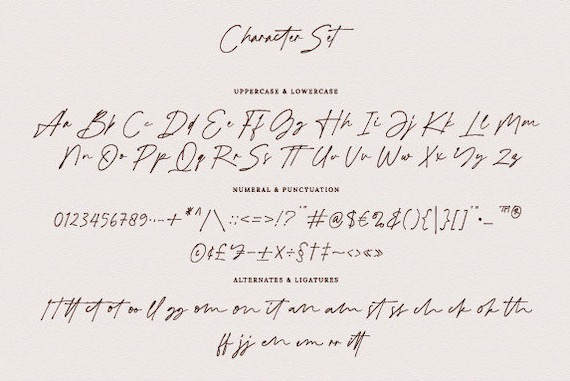 Character Set
UPPERCASE & LOWERCASE
Aa Bb Cc Dd Ee Ff Gg Hh Ii Jj Kk Ll Mm
Nn Oo Pp Qq Rr Ss Tt Uu Vv Ww Xx Yy Zz
NUMERAL & PUNCTUATION
0123456789·-+*^/\:;<=>!?"#@$€&(){|}[]"•_™®
©¢£¥−±×÷§†‡~‹›«»
ALTERNATES & LIGATURES
ct ot oo ll gg om on it an am st ss ch ck ok th
ff jj en em rr tt